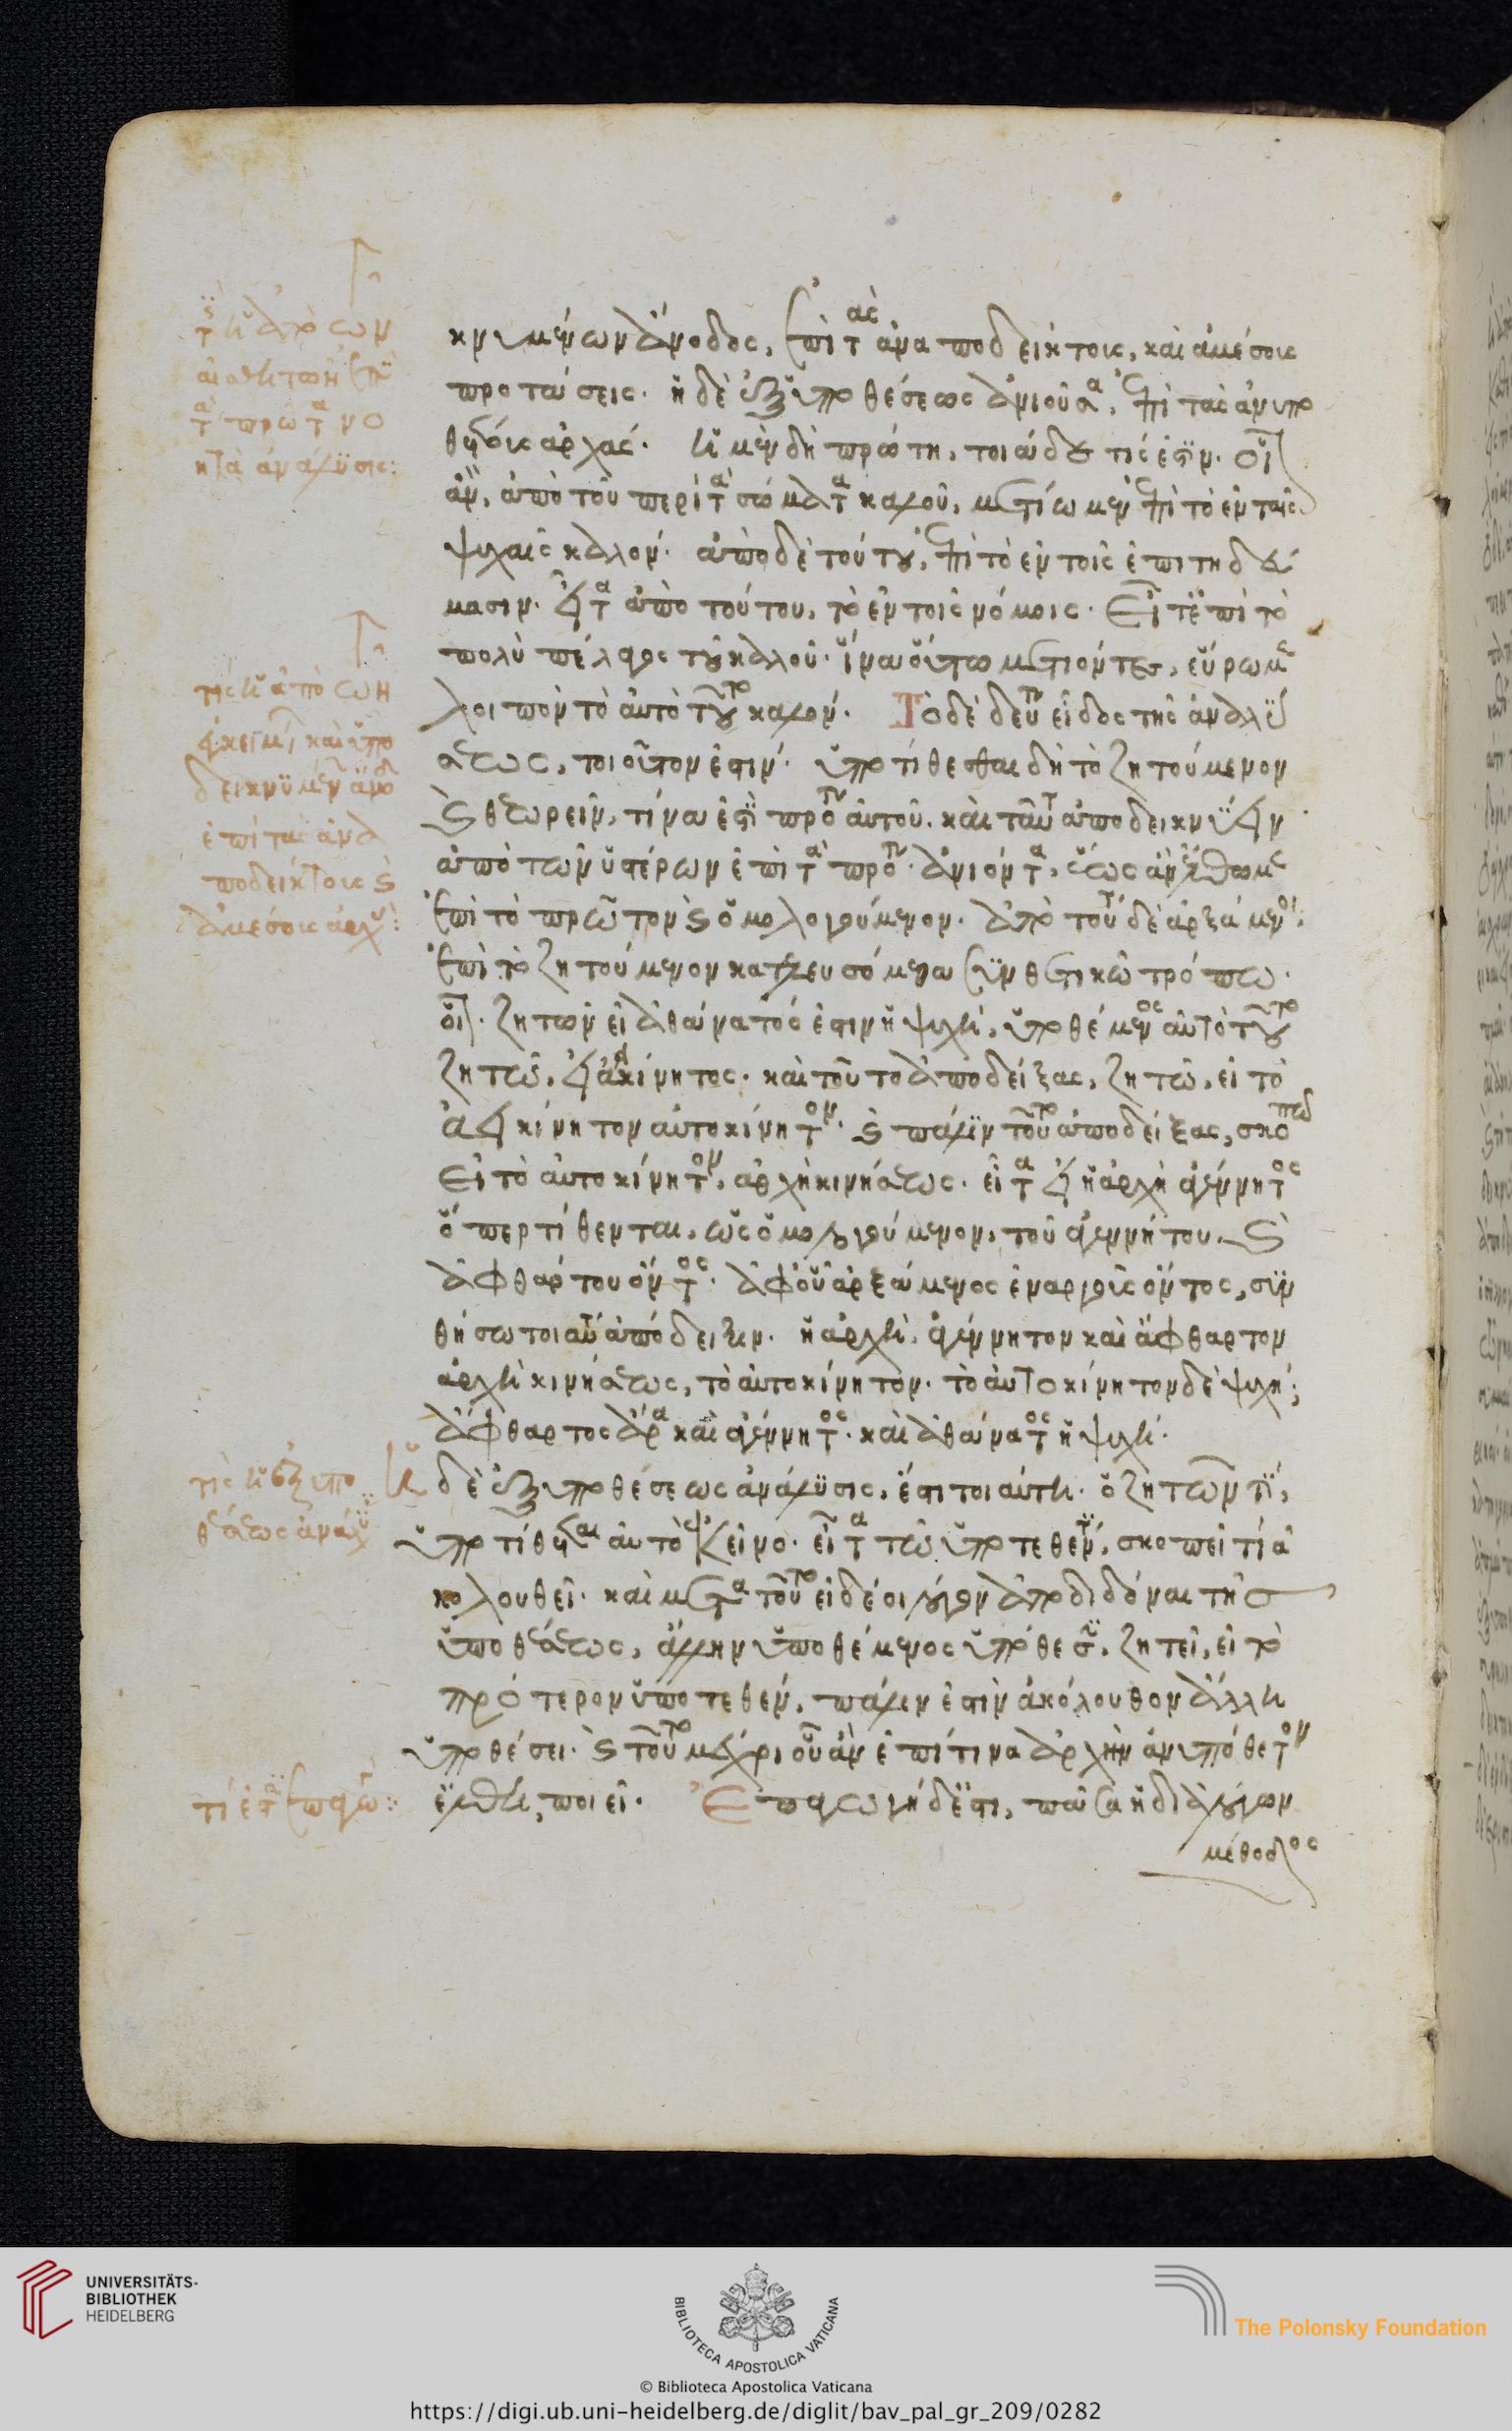 κνυμένων ἄνοδος, ἐπὶ τὰς ἀναποδείκτοις, καὶ ἀμέσοις
προτάσεις. ἡ δὲ ἐξ ὑποθέσεως ἀνιοῦσα, ἐπὶ τὰς ἀνυπο
θέτοις ἀρχάς. ἡ μὲν δὴ πρώτη, τοιάδε τίς ἐστιν. οἷον
ἂν, ἀπὸ τοῦ περὶ τὰ σώματα καλοῦ, μετίωμεν ἐπὶ τὸ ἐν ταῖς
ψυχαῖς καλόν. ἀπὸ δὲ τούτου, ἐπὶ τὸ ἐν τοῖς ἐπιτηδεύ
μασιν. εἶτα ἀπὸ τούτου, τὸ ἐν τοῖς νόμοις. εἶτ' ἐπὶ τὸ
πολὺ πέλαγος τοῦ καλοῦ. ἵνα οὕτω μετιόντες, εὕρωμεν
λοιπὸν τὸ αὐτὸ τοῦτο καλόν. Τὸ δὲ δεύτερον εἶδος τῆς ἀναλύ
σεως, τοιοῦτον ἐστίν. ὑποτίθεσθαι δὴ τὸ ζητούμενον
καὶ θεωρεῖν, τίνα ἐστὶ πρότερον αὐτοῦ. καὶ ταῦτ ἀποδεικνύειν
ἀπὸ τῶν ὑστέρων ἐπὶ τὰ πρότερον ἀνιόντα, ἕως ἂν ἔλθωμεν
ἐπὶ τὸ πρῶτον καὶ ὁμολογούμενον. ἀπὸ τούτ δὲ ἀρξάμενοι,
ἐπὶ τὸ ζητούμενον κατελευσόμεθα συνθετικῷ τρόπῳ.
οἷον. ζητῶν εἰ ἀθάνατός ἐστιν ἡ ψυχή, ὑποθέμενος αὐτὸ τοῦτο
ζητῶ, εἰ ἀεικίνητος. καὶ τοῦτο ἀποδείξας, ζητῶ, εἰ τὸ
ἀεικίνητον αὐτοκίνητον. καὶ πάλιν τοῦτο ἀποδείξας, σκοπῶ
εἰ τὸ αὐτοκίνητον, ἀρχὴ κινήσεως. εἶτα εἰ ἡ ἀρχὴ ἀγέννητος
ὅπερ τίθενται, ὡς ὁμολογούμενον, τοῦ ἀγεννήτου. καὶ
ἀφθάρτου ὄντος. ἀφ' οὗ ἀρξάμενος ἐναργοῦς ὄντος, συν
θήσω τοιαύτ ἀπόδειξιν. ἡ ἀρχὴ, ἀγέννητον καὶ ἄφθαρτον
ἀρχὴ κινήσεως, τὸ αὐτοκίνητον. τὸ αὐτοκίνητον δὲ ψυχή,
ἄφθαρτος ἄρα καὶ ἀγέννητος. καὶ ἀθάνατος ἡ ψυχή.
Ἡ δὲ ἐξ ὑποθέσεως ἀνάλυσις, ἔστι τοιαύτη. ὁ ζητῶν τὶ,
ὑποτίθεται αὐτὸ ἐκεῖνο. εἶτα τῷ ὑποτεθέντι, σκοπεῖ τί ἀ
κολουθεῖ. καὶ μετὰ τοῦτο εἰ δέοι λόγον ἀποδιδόναι τῆς
ὑποθέσεως, ἄλλην ὑποθέμενος ὑπόθεσιν, ζητεῖ, εἰ τὸ
πρότερον ὑποτεθέν, πάλιν ἐστὶν ἀκόλουθον ἄλλη
ὑποθέσει. καὶ τοῦτο μέχρι οὗ ἂν ἐπί τινα ἀρχὴν ἀνυπόθετον
ἔλθη, ποιεῖ. Ἐπαγωγὴ δέ ἐστι, πᾶσα ἡ διὰ λόγων
μέθοδος
τίς ἡ ἀπὸ τῶν
αἰσθητῶν ἐπὶ
τὰ πρῶτα νο
ητὰ ἀνάλυσις:
τίς ἡ ἀπὸ τῶν
δεικνυμένων ἄνοδ
ἐπὶ τὰς ἀνα
ποδείκτοις καὶ
ἀμέσοις ἀρχ:
τίς ἡ ἐξ ὑπο
θέσεως ἀνάλυ
τί ἐστιν ἐπαγω:
UNIVERSITÄTS-
BIBLIOTHEK
HEIDELBERG
BIBLIOTECA APOSTOLICA VATICANA
© Biblioteca Apostolica Vaticana
The Polonsky Foundation
https://digi.ub.uni-heidelberg.de/diglit/bav_pal_gr_209/0282